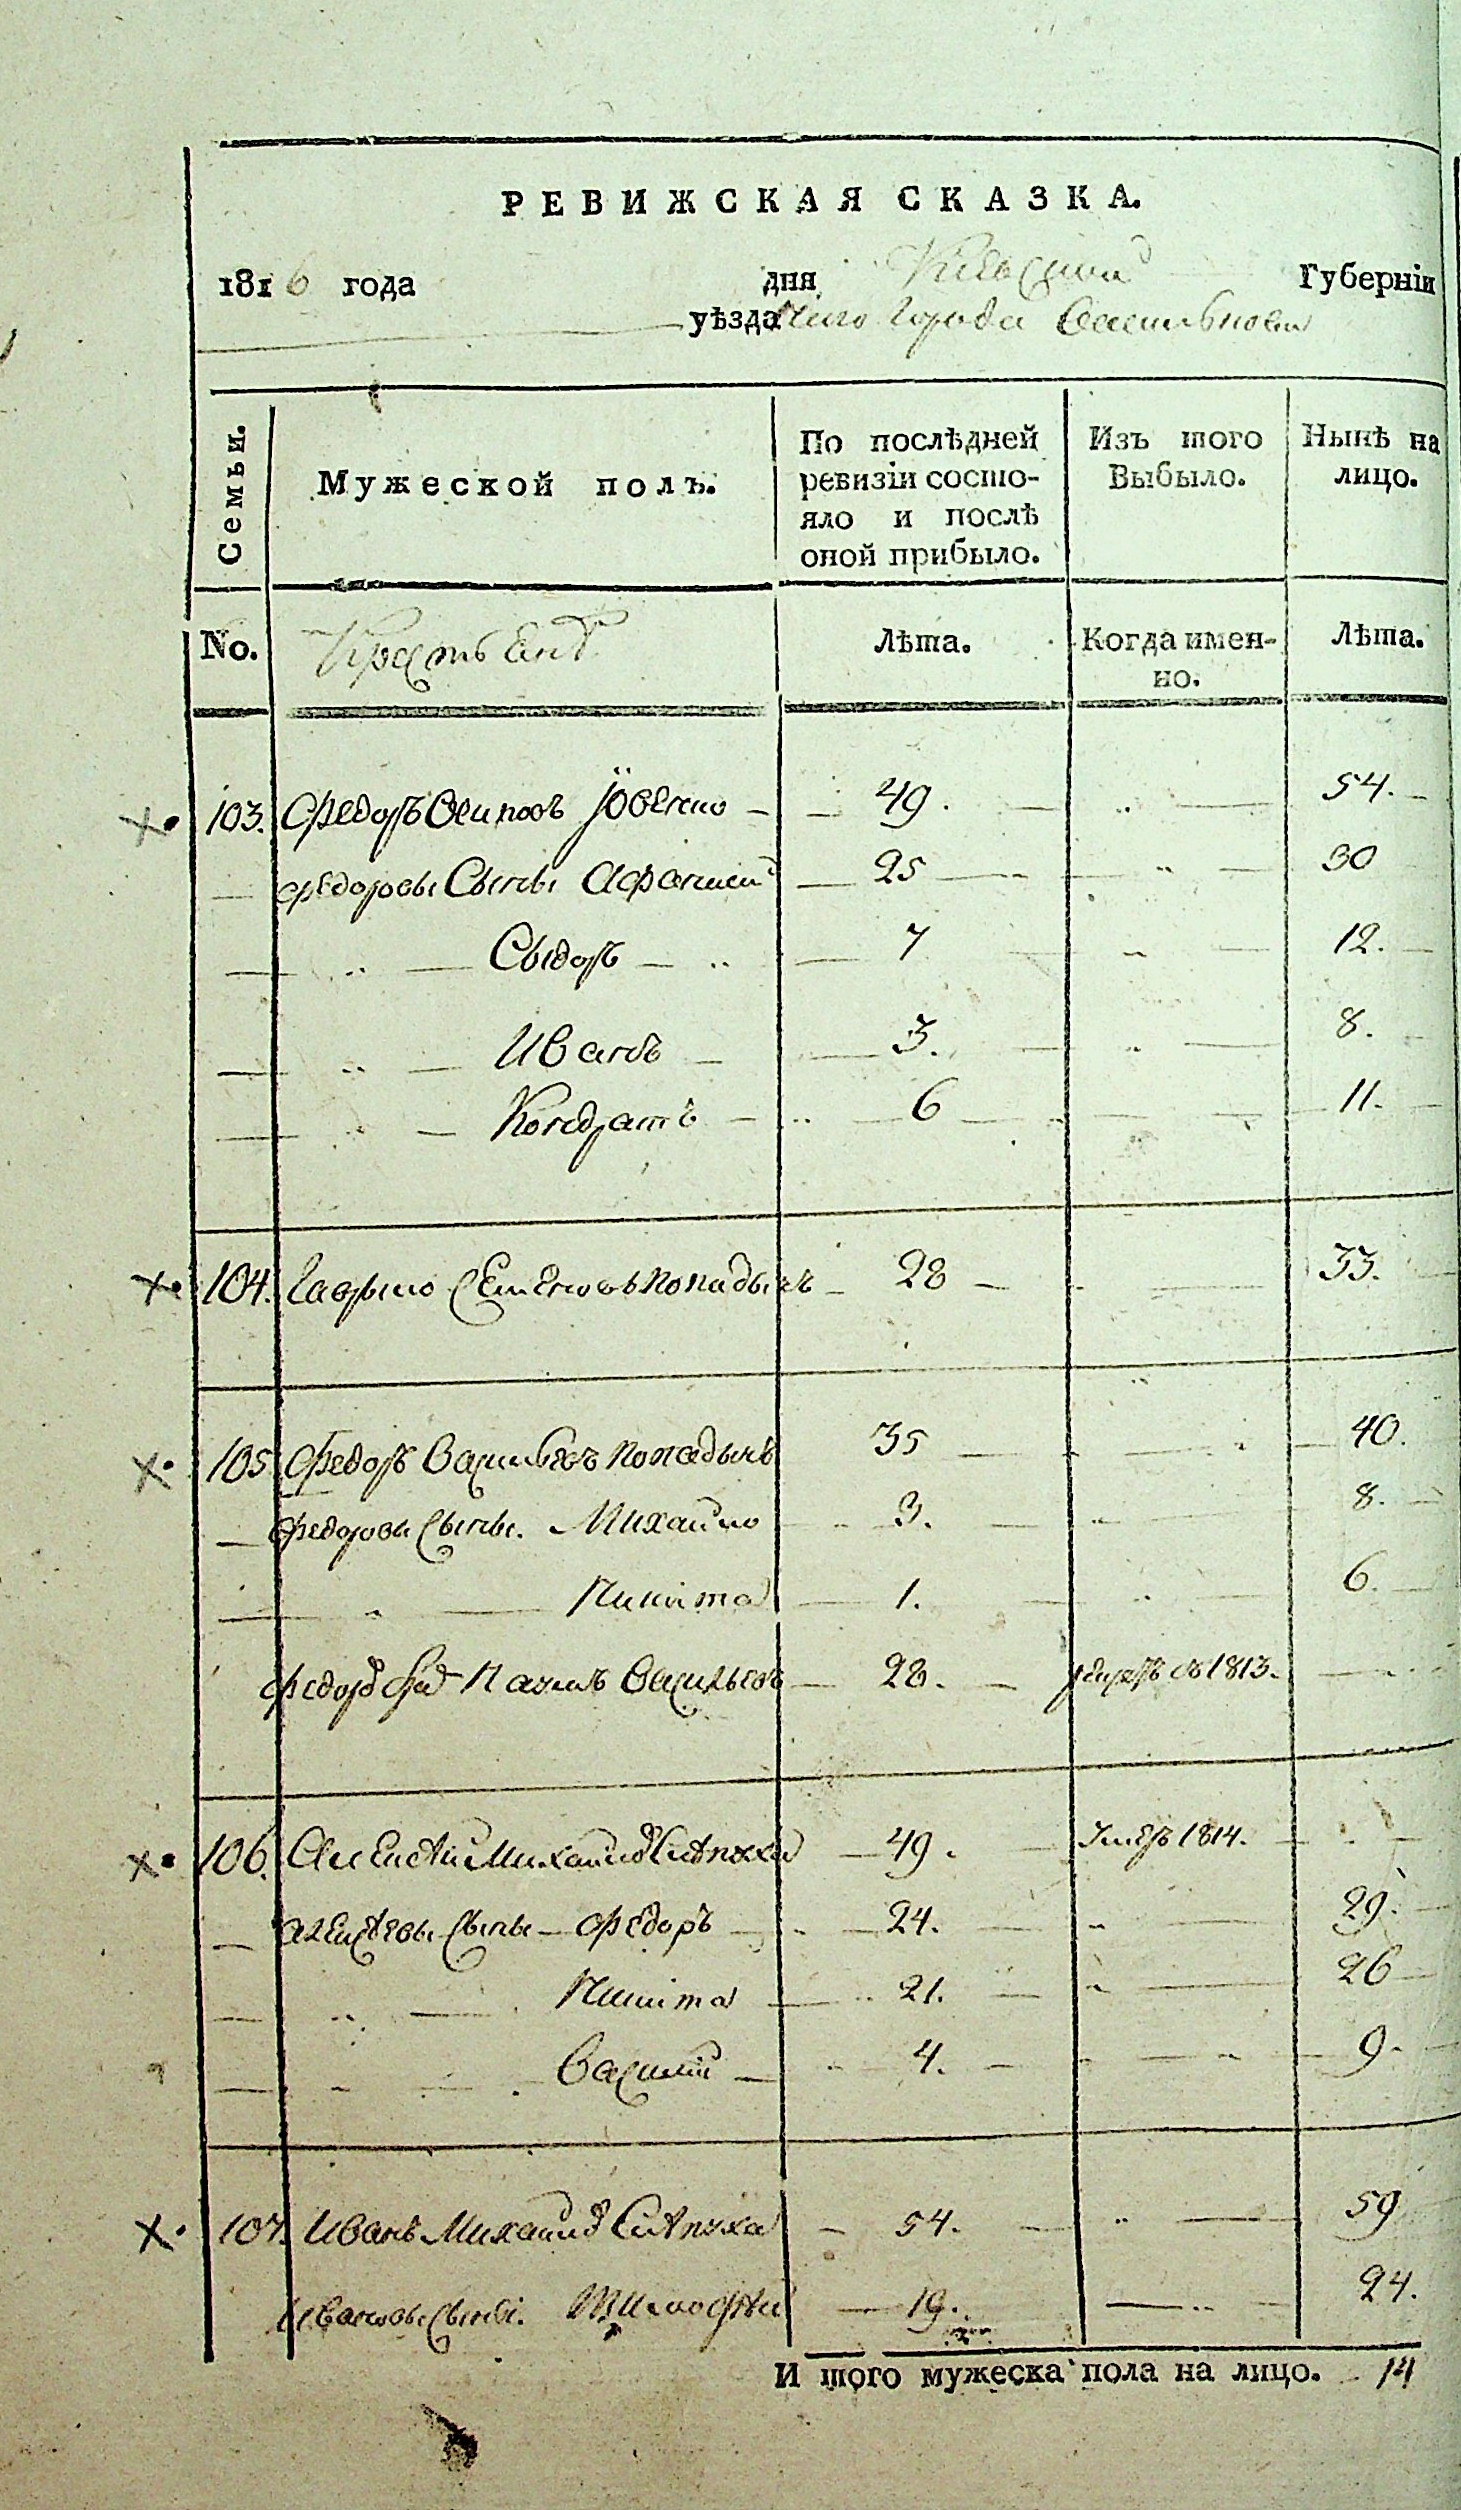 РЕВИЖСКАЯ СКАЗКА.
1816 года дня Киевской Губернiи
уѣзда города Василькова
Семьи. Мужеской полъ. По послѣдней ревизiи состояло и послѣ оной прибыло. Изъ того Выбыло. Нынѣ на лицо.
No. Лѣта. Когда именно. Лѣта.
103. Федоръ Осиповъ 49. 54.
Федоровы Сыны Афанасий 25 30
Сыдоръ 7 12.
Иванъ 3. 8.
Кондратъ 6 11.
104. Гаврыло Семеновъ Попадычъ 28 33.
105 Федоръ Васильевъ Попадычъ 35 40.
Федоровы Сыны. Михайло 3. 8.
Никита 1. 6.
Федора Павелъ Васильевъ 28. въ 1813.
106. Алексѣй Михайловъ Слѣпуха 49. Умеръ 1814.
Алексѣевы Сыны Федоръ 24. 29.
Никита 21. 26
Василiй 4. 9.
107. Иванъ Михайловъ Слѣпуха 54. 59
Ивановы Сыны. Тимофѣй 19. 24.
И того мужеска пола на лицо. 14